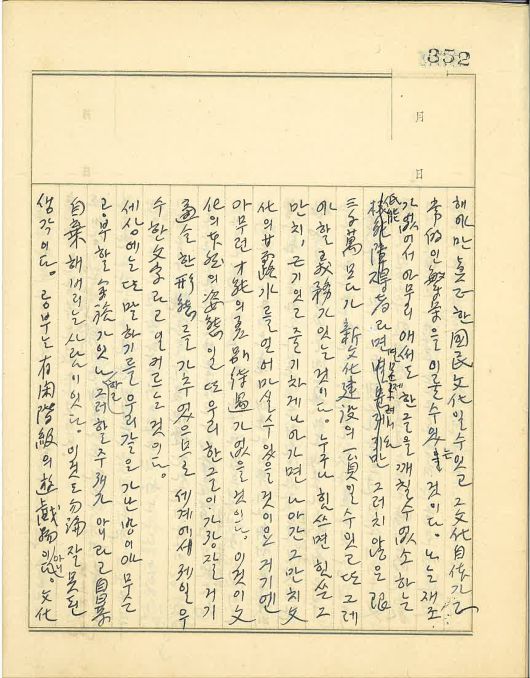 352
月
日
해야만 훌륭한 國民文化일 수 있고 그 文化自体가
常 인 繁榮을 이룰 수 있는 것이다. 나는 재조
가 없어서 아무리 애써도 한글을 깨칠 수 없소 하는
低能 障碍者라면 그러치 않은 限
三千萬 모다가 新文化建設의 一員일 수 있고 또 그레
야 할 義務가 있는 것이다. 누구나 힘쓰면 힘쓴 그
만치, 끈기 있고 줄기차게 나아가면 나아간 그만치 文
化의 甘露水를 얻어 마실 수 있을 것이요 거기엔
아무런 才能의 差別待遇가 없을 것이다. 이것이 文
化의 本然의 姿態일 또 우리 한글이 가장 잘 거기
適合한 形態를 가추었음므로 세계에 제일 우
수한 文字라고 일커르는 것이다.
세상에는 또 말하기를 우리 같은 가난뱅이야 무슨
공부할 餘裕가 있나 그러할 주제가 아니라고 自暴
自棄해버리는 사람이 있다. 이것도 勿論 잘못된
생각이다. 공부는 有閑階級의 遊戱物이 아니다. 文化